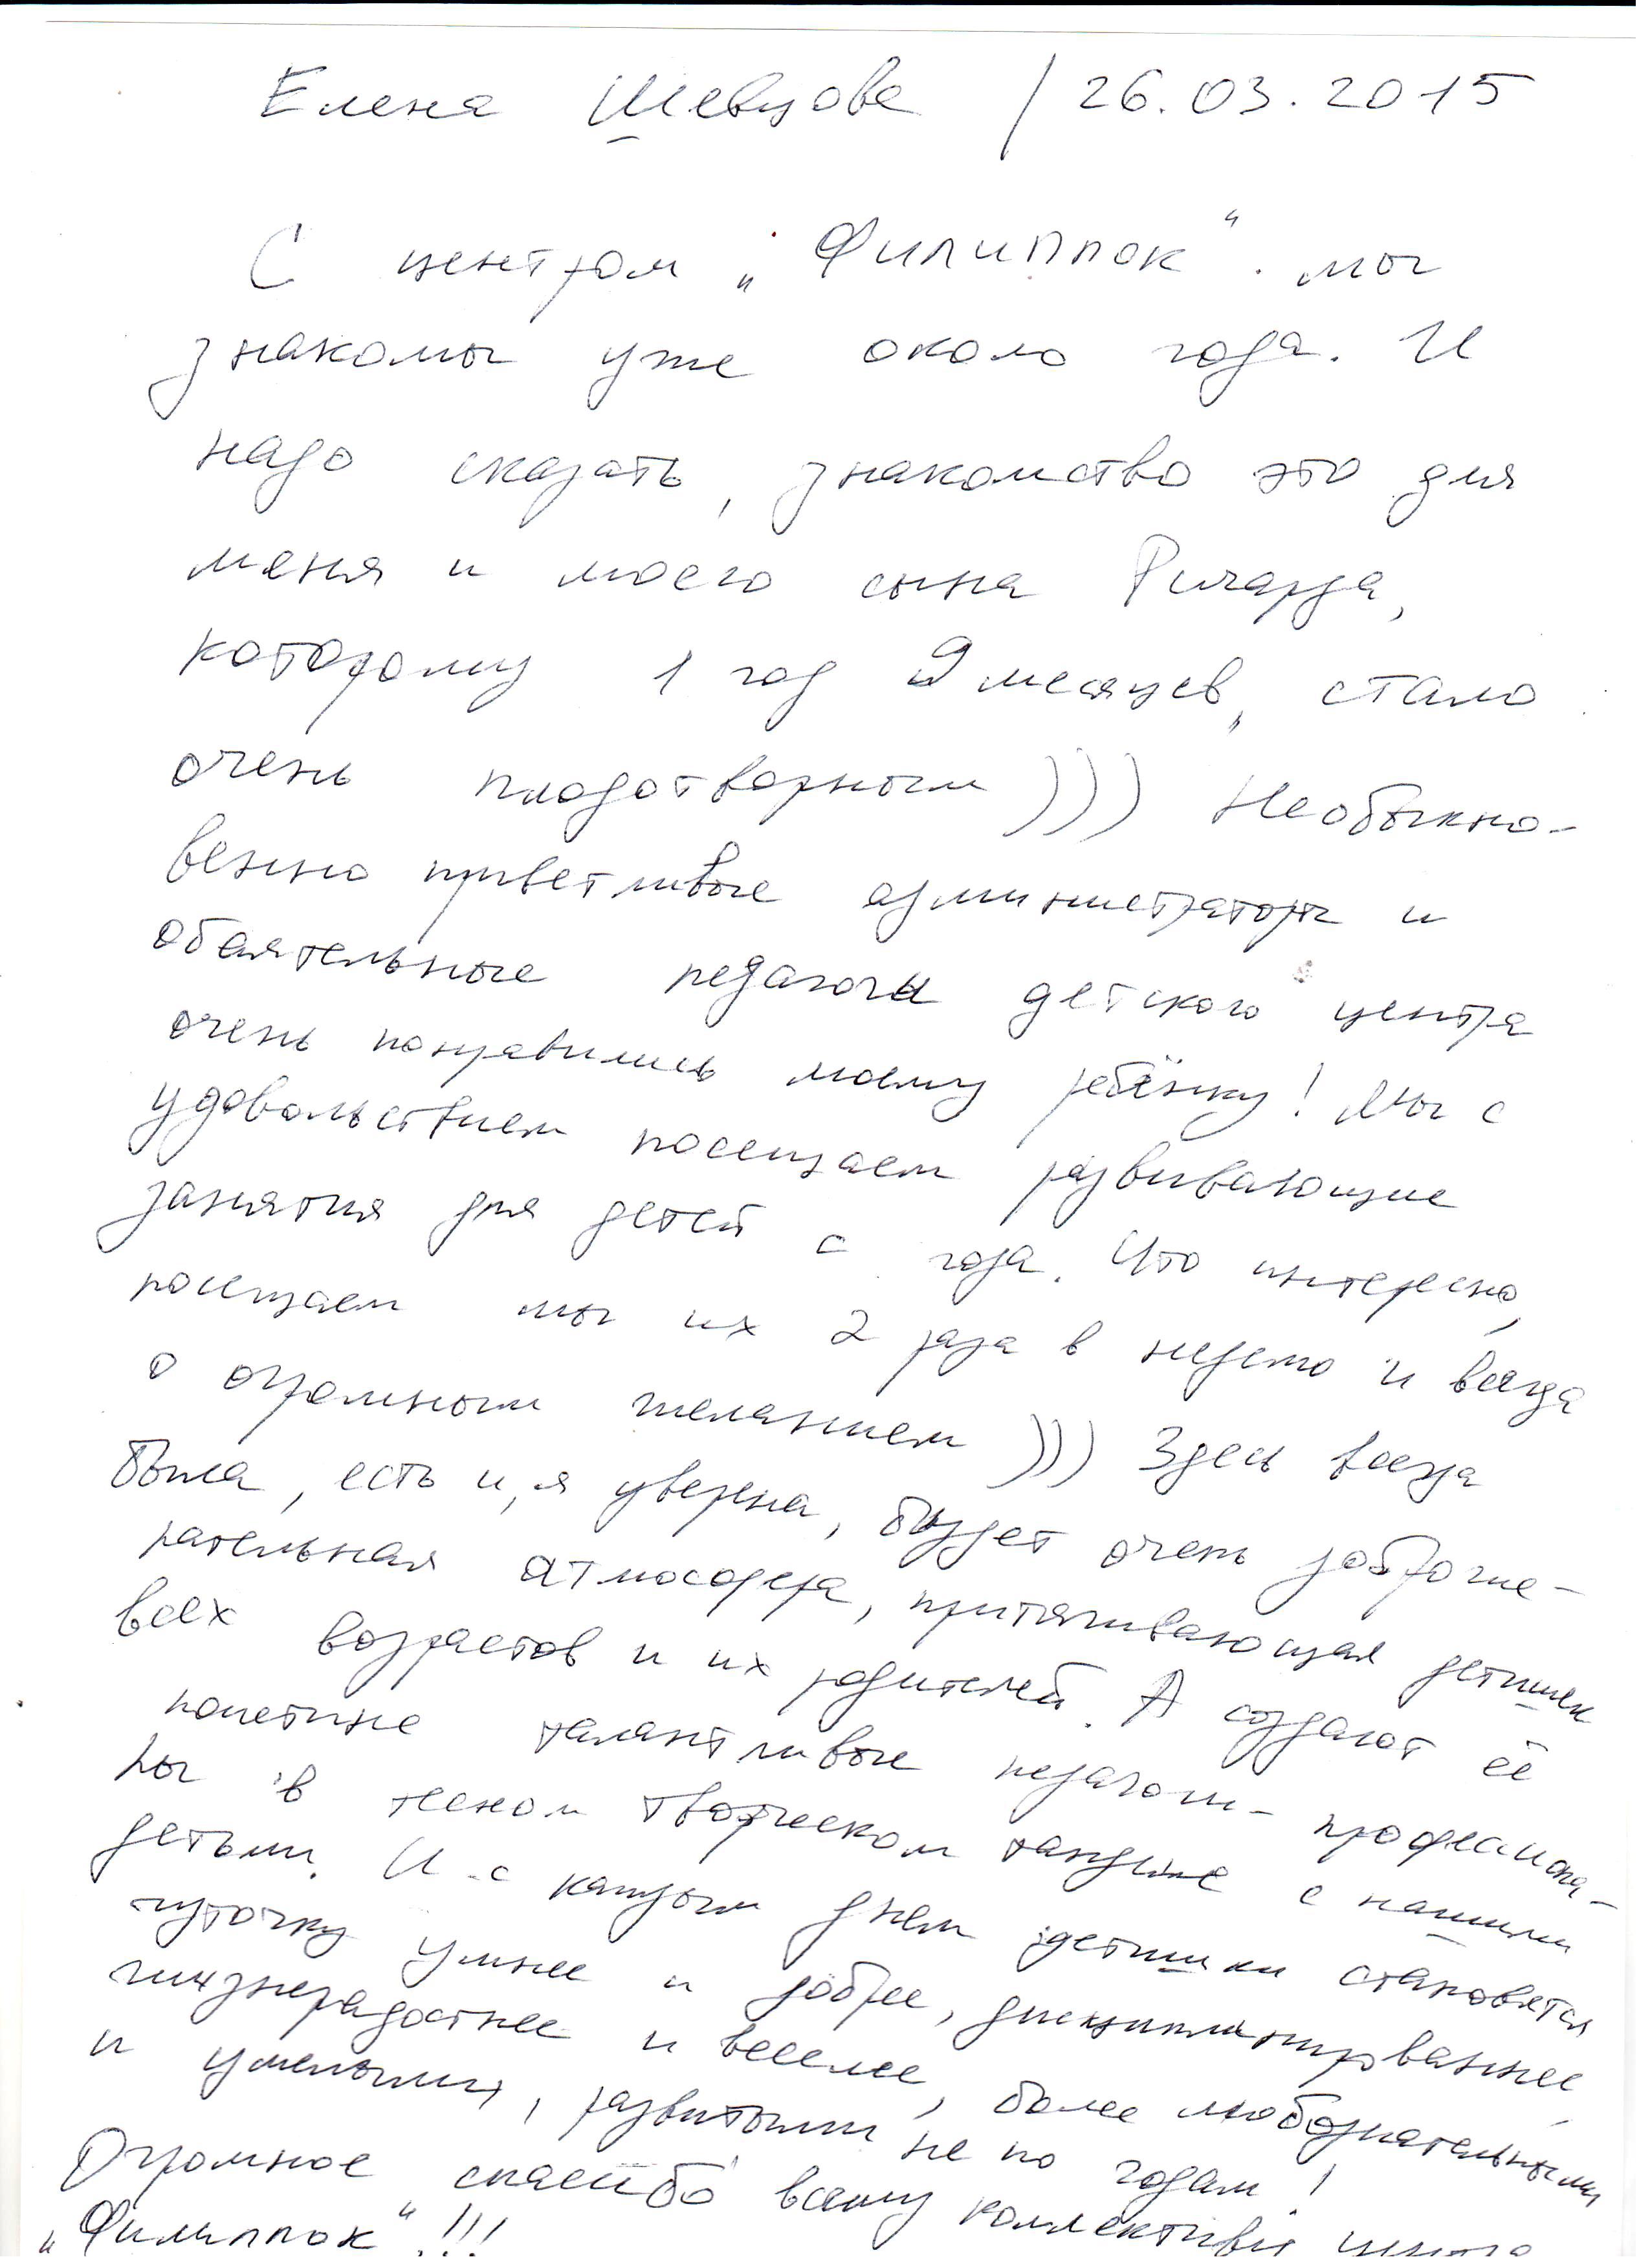 Елена Шевцова / 26.03.2015
С центром „Филиппок“. мы
знакомы уже около года. И
надо сказать, знакомство это для
меня и моего сына Ричарда,
которому 1 год 9 месяцев, стало
очень плодотворным))) Необыкно-
венно приветливые администраторы и
обаятельные педагоги детского центра
очень понравились моему ребёнку! Мы с
удовольствием посещаем развивающие
занятия для детей с года. Что интересно,
посещаем мы их 2 раза в неделю и всегда
с огромным желанием))) Здесь всегда
была, есть и, я уверена, будет очень доброже-
лательная атмосфера, притягивающая детишек
всех возрастов и их родителей. А создают её
поистине талантливые педагоги-профессиона-
лы в тесном творческом тандеме с нашими
детьми. И с каждым днем детишки становятся
чуточку умнее и добрее, дисциплинированнее,
жизнерадостнее и веселее, более любознательными
и умелыми, развитыми не по годам!
Огромное спасибо всему коллективу центра
„Филиппок“!!!